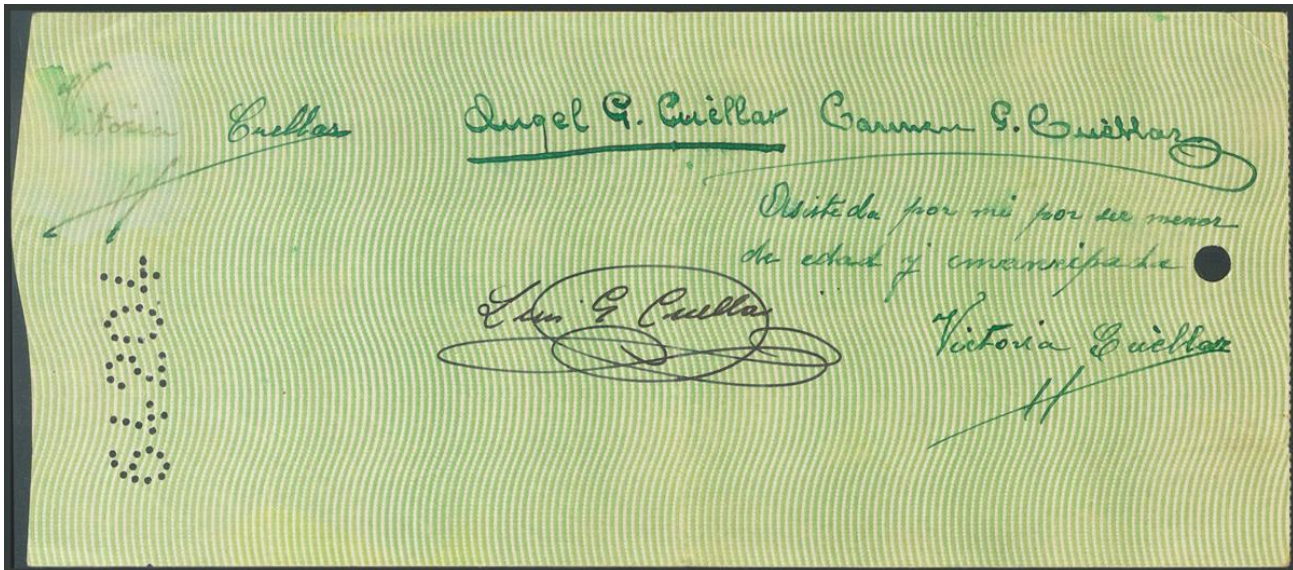 Victoria Cuellar Angel G. Cuèllar Carmen G. Cuèllar
Asistida por mi por ser menor
de edad y emancipada
Luis G Cuellar
Victoria Cuèllar